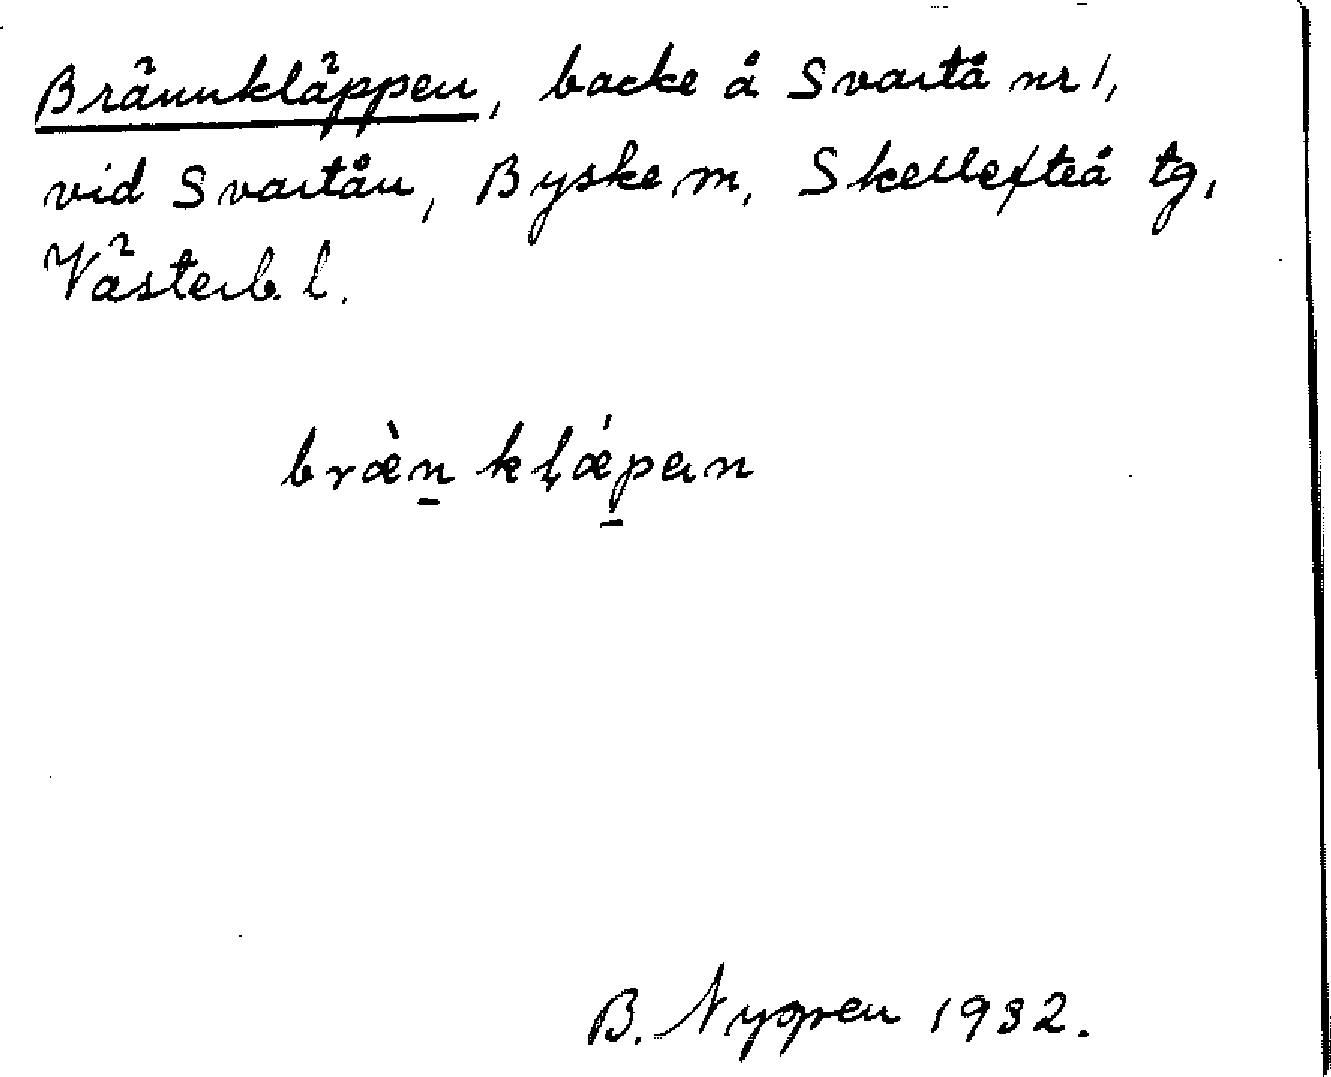 Brännkläppen, backe å Svartå nr 1,
vid Svartån, Byske m, Skellefteå tg,
Västerb. l.
bræ̀n̲ kļǽp̲ɑn
B. Nygren 1932.